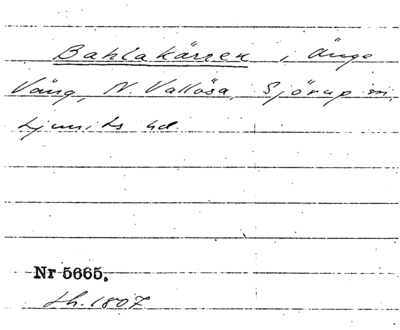 Bahlakärren i Änge
Vång, N. Vallösa, Sjörup sn,
Ljunits hd.
Nr 5665.
Lh. 1807